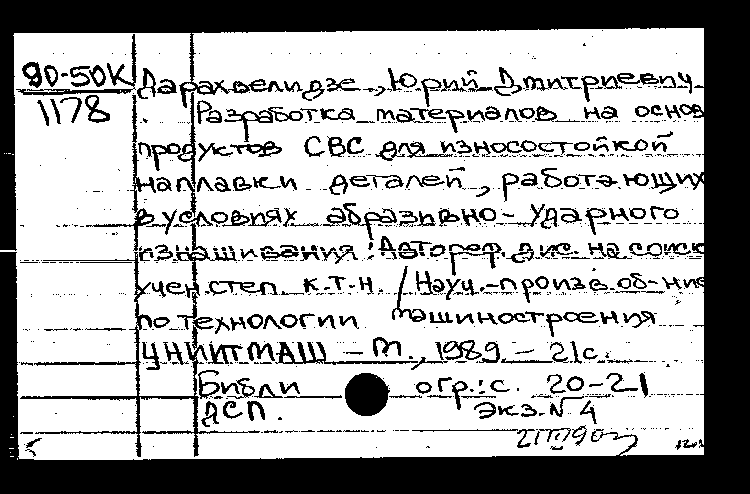 90-50К Дарахвелидзе, Юрий Дмитриевич
1178 . Разработка материалов на основ
продуктов СВС для износостойкой
наплавки деталей, работающих
в условиях абразивно-ударного
изнашивания: Автореф. дис. на соиск
учен. степ. к.т.н. / Науч.-произв. об-ние
по технологии машиностроения
ЦНИИТМАШ - М., 1989. - 21 с.
Библи огр.: с. 20-21
ДСП. Экз. N 4